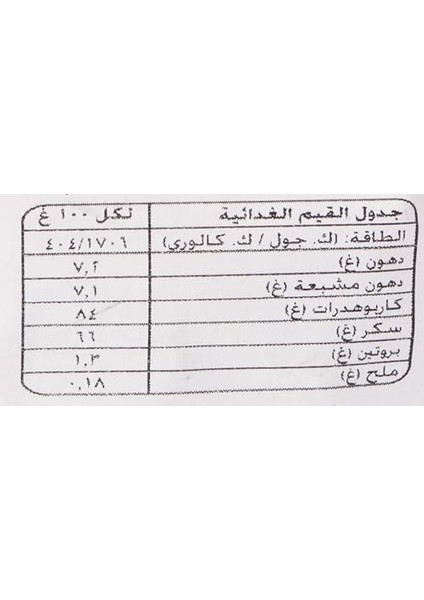 جدول القيم الغذائية لكل ١٠٠ غ
الطاقة: (ك. جول / ك. كالوري) ٤٠٤/١٧٠٦
دهون (غ) ٧,٢
دهون مشبعة (غ) ٧,١
كاربوهدرات (غ) ٨٤
سكر (غ) ٦٦
بروتين (غ) ١,٣
ملح (غ) ٠,١٨